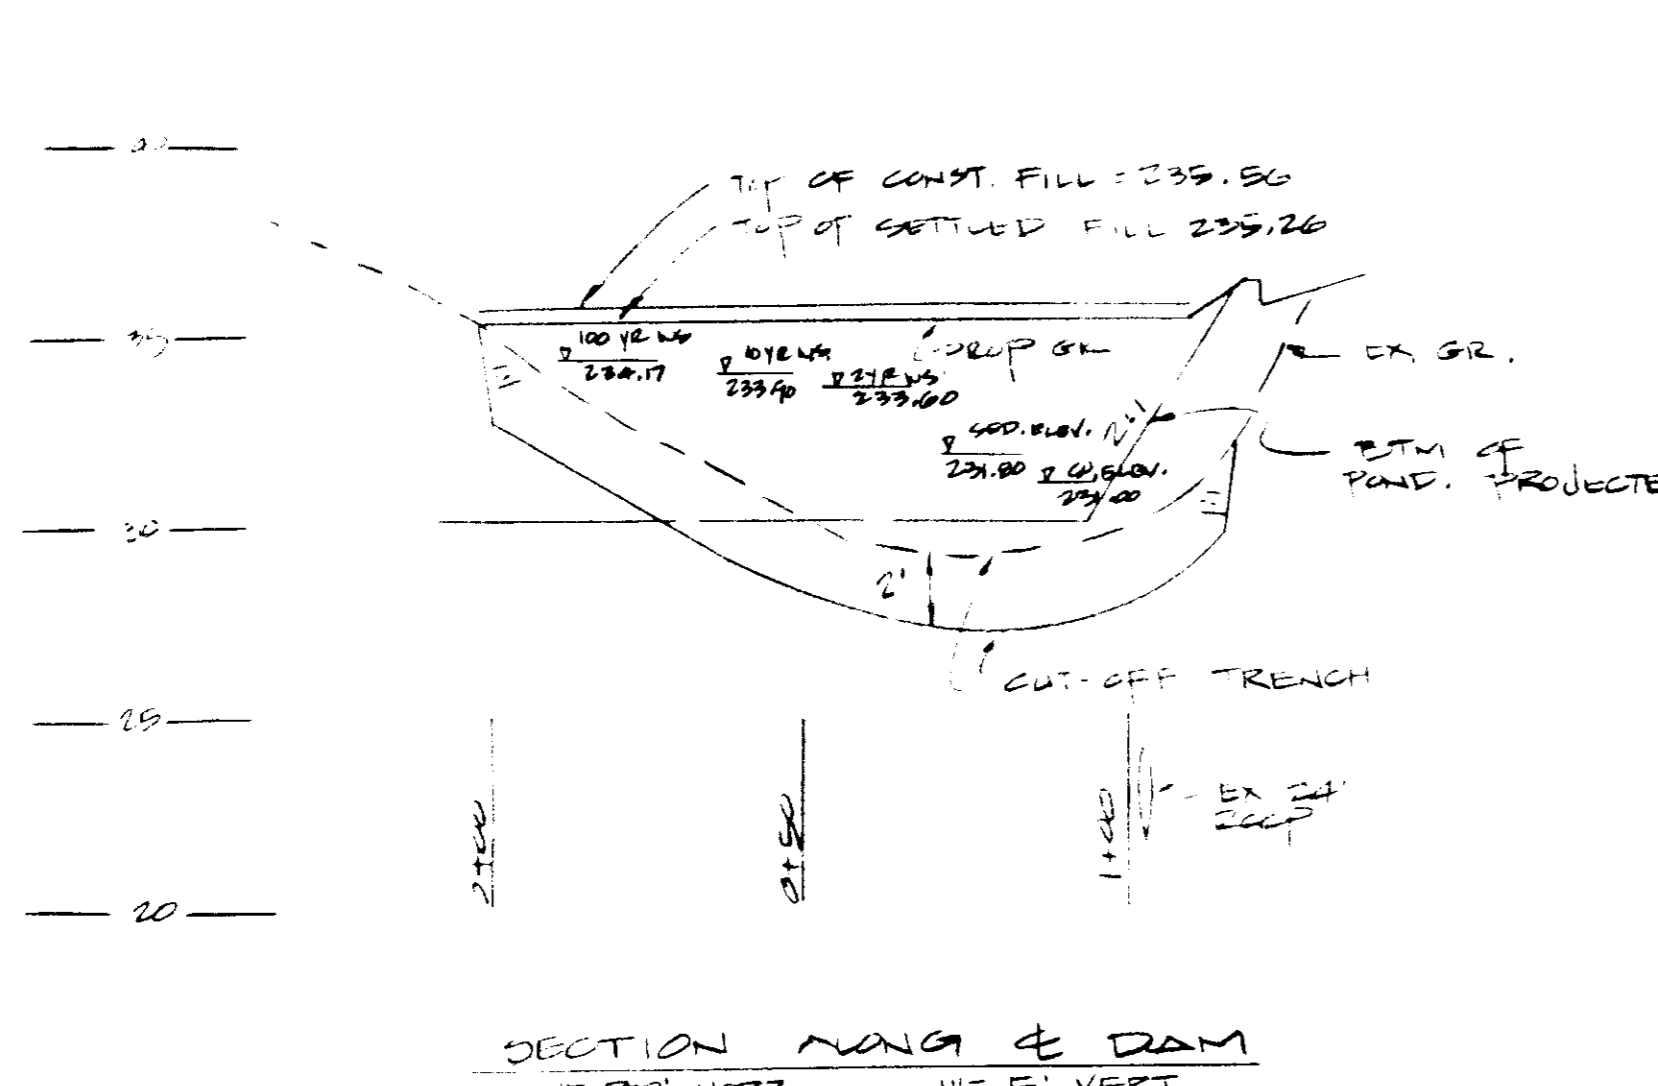 40
TOP OF CONST. FILL = 235.56
TOP OF SETTLED FILL 235.26
35
100 YR WS
234.17
10 YR WS
233.90
2 YR WS
233.60
PROP GR
EX. GR.
SED. ELEV.
231.80
2:1
ELEV.
231.00
1:1
1:1
BTM OF
POND. PROJECTE
30
2'
CUT-OFF TRENCH
25
0+50
1+00
EX 24"
20
SECTION ALONG ℄ DAM
HORZ 1"= 5' VERT